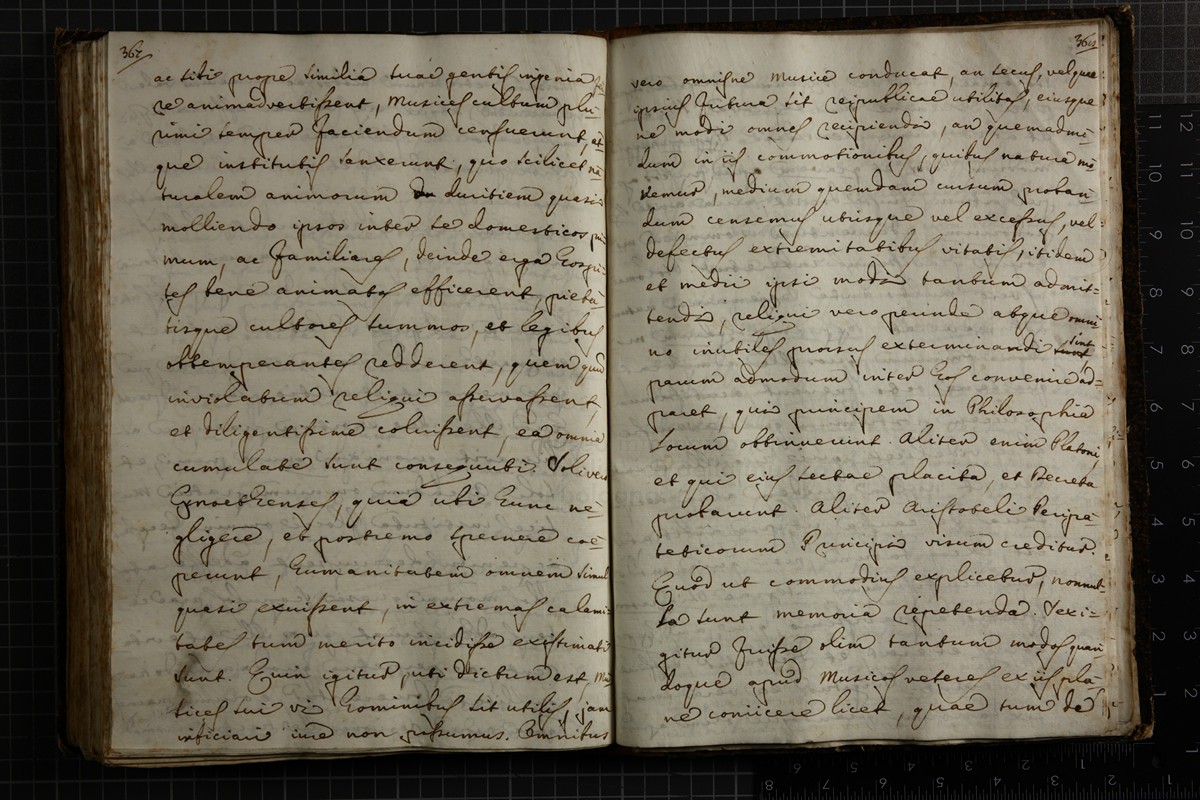 367
ac sibi prope similia suae gentis ingenia
re animadvertissent, Musices cultum plu
rimi semper faciendum censuerunt, at
que institutis sanxerunt, quo scilicet na
turalem animorum duritiem quasi
molliendo ipsos inter se domesticos pri
mum, ac familiares, deinde erga hospi
tes bene animatos efficerent, pieta
tisque cultores summos, et legibus
obtemperantes redderent, quem quia
inviolatum reliqui asservassent,
et diligentissime coluissent, ea omnia
cumulate sunt consequuti. Soli vero
Cynaethenses, quia ubi hunc ne=
gligere, et postremo spernere coe=
perunt, humanitatem omnem simul
quasi exuissent, in extremas calami
tates tum merito incidisse existimati
sunt. Quin igitur, uti dictum est, Mu
sices sui vi hominibus sit utilis, jam
inficiari iure non possumus. Omnibus
vero omnisne Musice conducat, an secus, vel quae
ipsius futura sit reipublicae utilitas, eiusque
ne modi omnes recipiendi, an quemadmo=
dum in iis commotionibus, quibus natura mo
vemur, medium quemdam cursum proban=
dum censemus utrisque vel excessus, vel=
defectus extremitatibus vitatis, itidem
et medii ipsi modi tantum admit=
tendi, reliqui vero perinde atque omni
no inutiles prorsus exterminandi sint
parum admodum inter eos convenire ad=
paret, qui principem in Philosophia
Locum obtinuerunt. Aliter enim Platoni,
et qui eius sectae placita, et Decreta
probarunt. Aliter Aristoteli Peripa=
teticorum Principi visum creditur.
Quod ut commodius explicetur, nonnul=
la sunt memoria repetenda. Sexi=
gitur fuisse olim tantum modos quan=
doque apud Musicos veteres ex iis pla=
ne coniicere licet, quae tum de